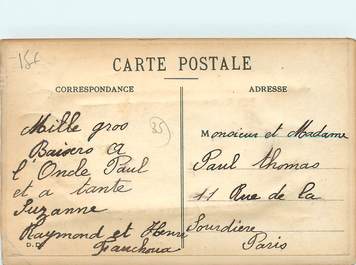 15€
CARTE POSTALE
CORRESPONDANCE
ADRESSE
Mille gros
Baisers a
l'Oncle Paul
et a tante
Suzanne
Raymond et Henri
Fauchoux
D.D.
35
Monsieur et Madame
Paul Thomas
11 Rue de la
Sourdiere
Paris